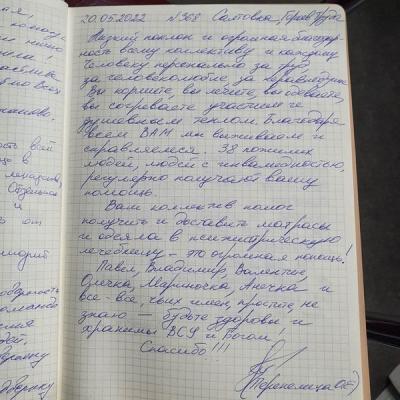 20.05.2022 №368 Салтовка, Героев Труда
Низкий поклон и огромная благодар-
ность всему коллективу и каждому
человеку персонально за труд
за человеколюбие, за
Вы кормите, вы лечите, вы одеваете,
вы согреваете участием и
душевным теплом. Благодаря
всем ВАМ мы выживаем и
справляемся. 38 пожилых
людей, людей с инвалидностью,
регулярно получают вашу
помощь.
Ваш коллектив помог
получить и доставить матрасы
и одеяла в психиатрическую
лечебницу - это огромная помощь!
Павел, Владимир, Валентин,
Олечка, Мариночка, Анечка и
все-все, чьих имен, простите, не
знаю — будьте здоровы и
хранимы ВСУ и Богом!
Спасибо!!!
(Перепелица О.Е.)